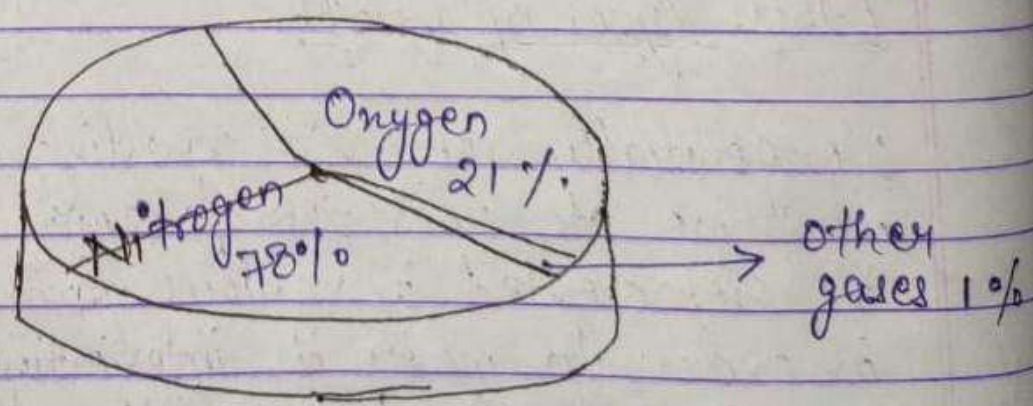 Oxygen
21 %.
Nitrogen
78%
other
gases 1%